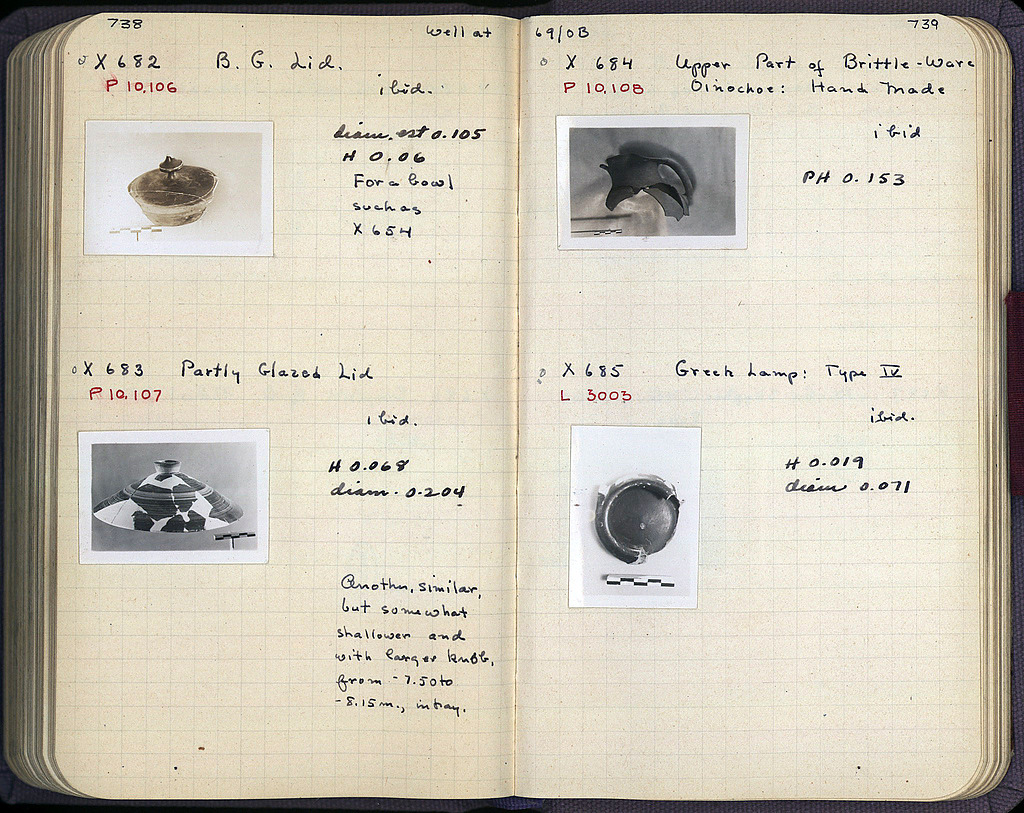 738
well at
X 682 B. G. Lid.
P 10,106
ibid.
diam. est 0.105
H 0.06
For a bowl
such as
X 654
X 683 Partly Glazed Lid
P 10,107
ibid.
H 0.068
diam. 0.204
Another, similar,
but somewhat
shallower and
with larger knob,
from -7.50 to
-8.15 m., in tray.
69/ΟΒ
739
X 684 Upper Part of Brittle-Ware
P 10,108 Oinochoe: Hand Made
ibid
PH 0.153
X 685 Greek Lamp: Type IV
L 3003
ibid.
H 0.019
diam 0.071